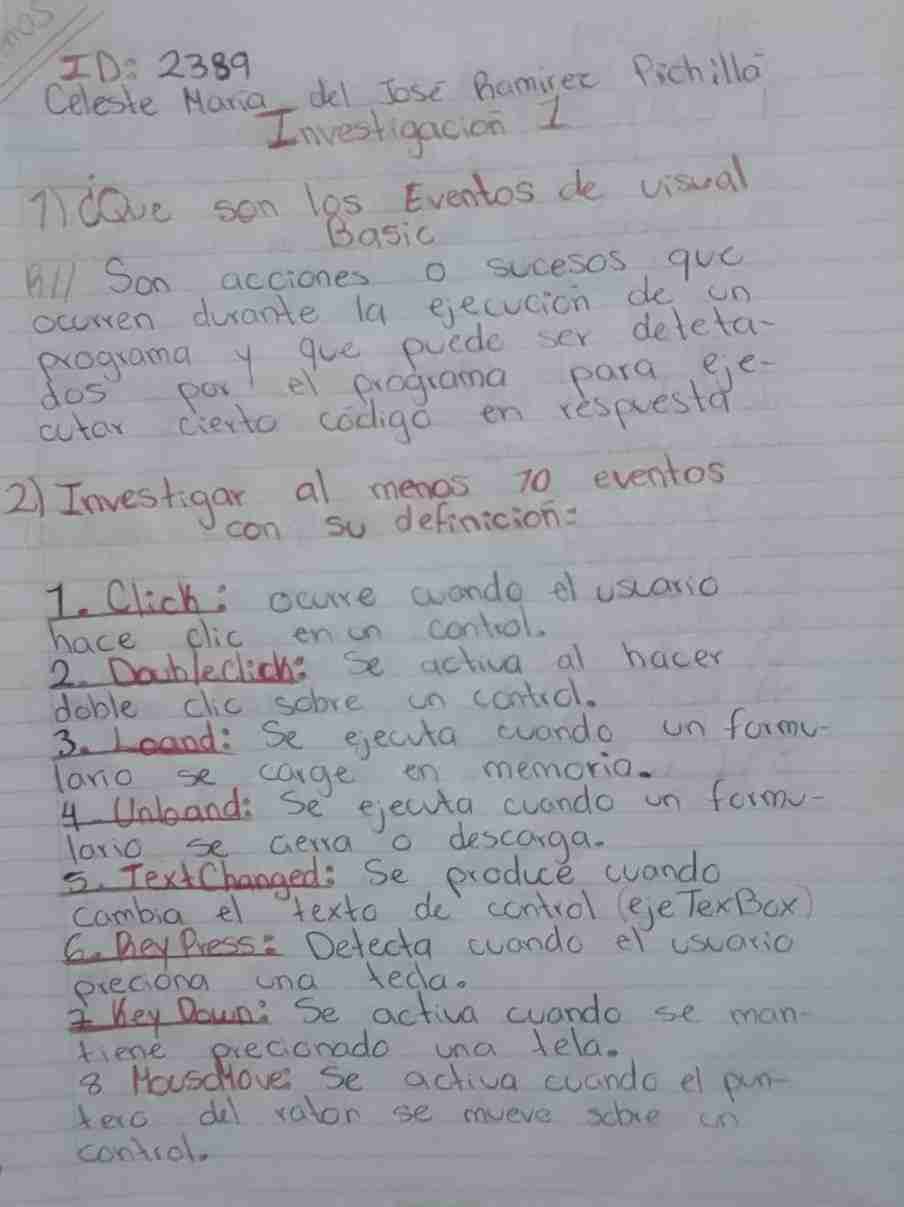 ID: 2389
Celeste María del José Ramirez Pichilla
Investigación 1
1) ¿Que son los Eventos de visual
Basic
R// Son acciones o sucesos que
ocurren durante la ejecución de un
programa y que puede ser deteta-
dos por el programa para eje-
cutar cierto código en respuesta
2) Investigar al menos 10 eventos
con su definición:
1. Click: ocurre cuando el usuario
hace clic en un control.
2. Doubleclick: Se activa al hacer
doble clic sobre un control.
3. Loand: Se ejecuta cuando un formu-
lario se carge en memoria.
4 Unloand: Se ejecuta cuando un formu-
lario se cierra o descarga.
5. TextChanged: Se produce cuando
cambia el texto de control (eje TexBox)
6. Key Press: Detecta cuando el usuario
preciona una tecla.
7 Key Down: Se activa cuando se man-
tiene precionado una tela.
8 MouseMove: Se activa cuando el pun-
tero del raton se mueve sobre un
control.